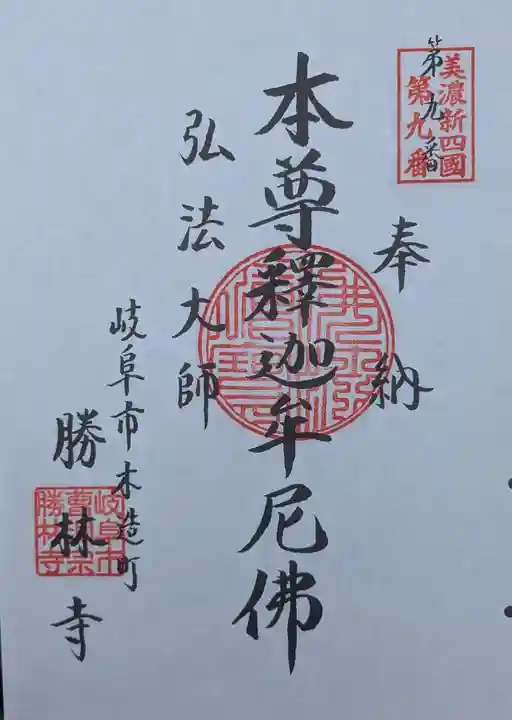 美濃新四國
第九番
第九番
奉納
本尊釋迦牟尼佛
弘法大師
岐阜市木造町
勝林寺
岐阜市
曹洞宗
勝林寺